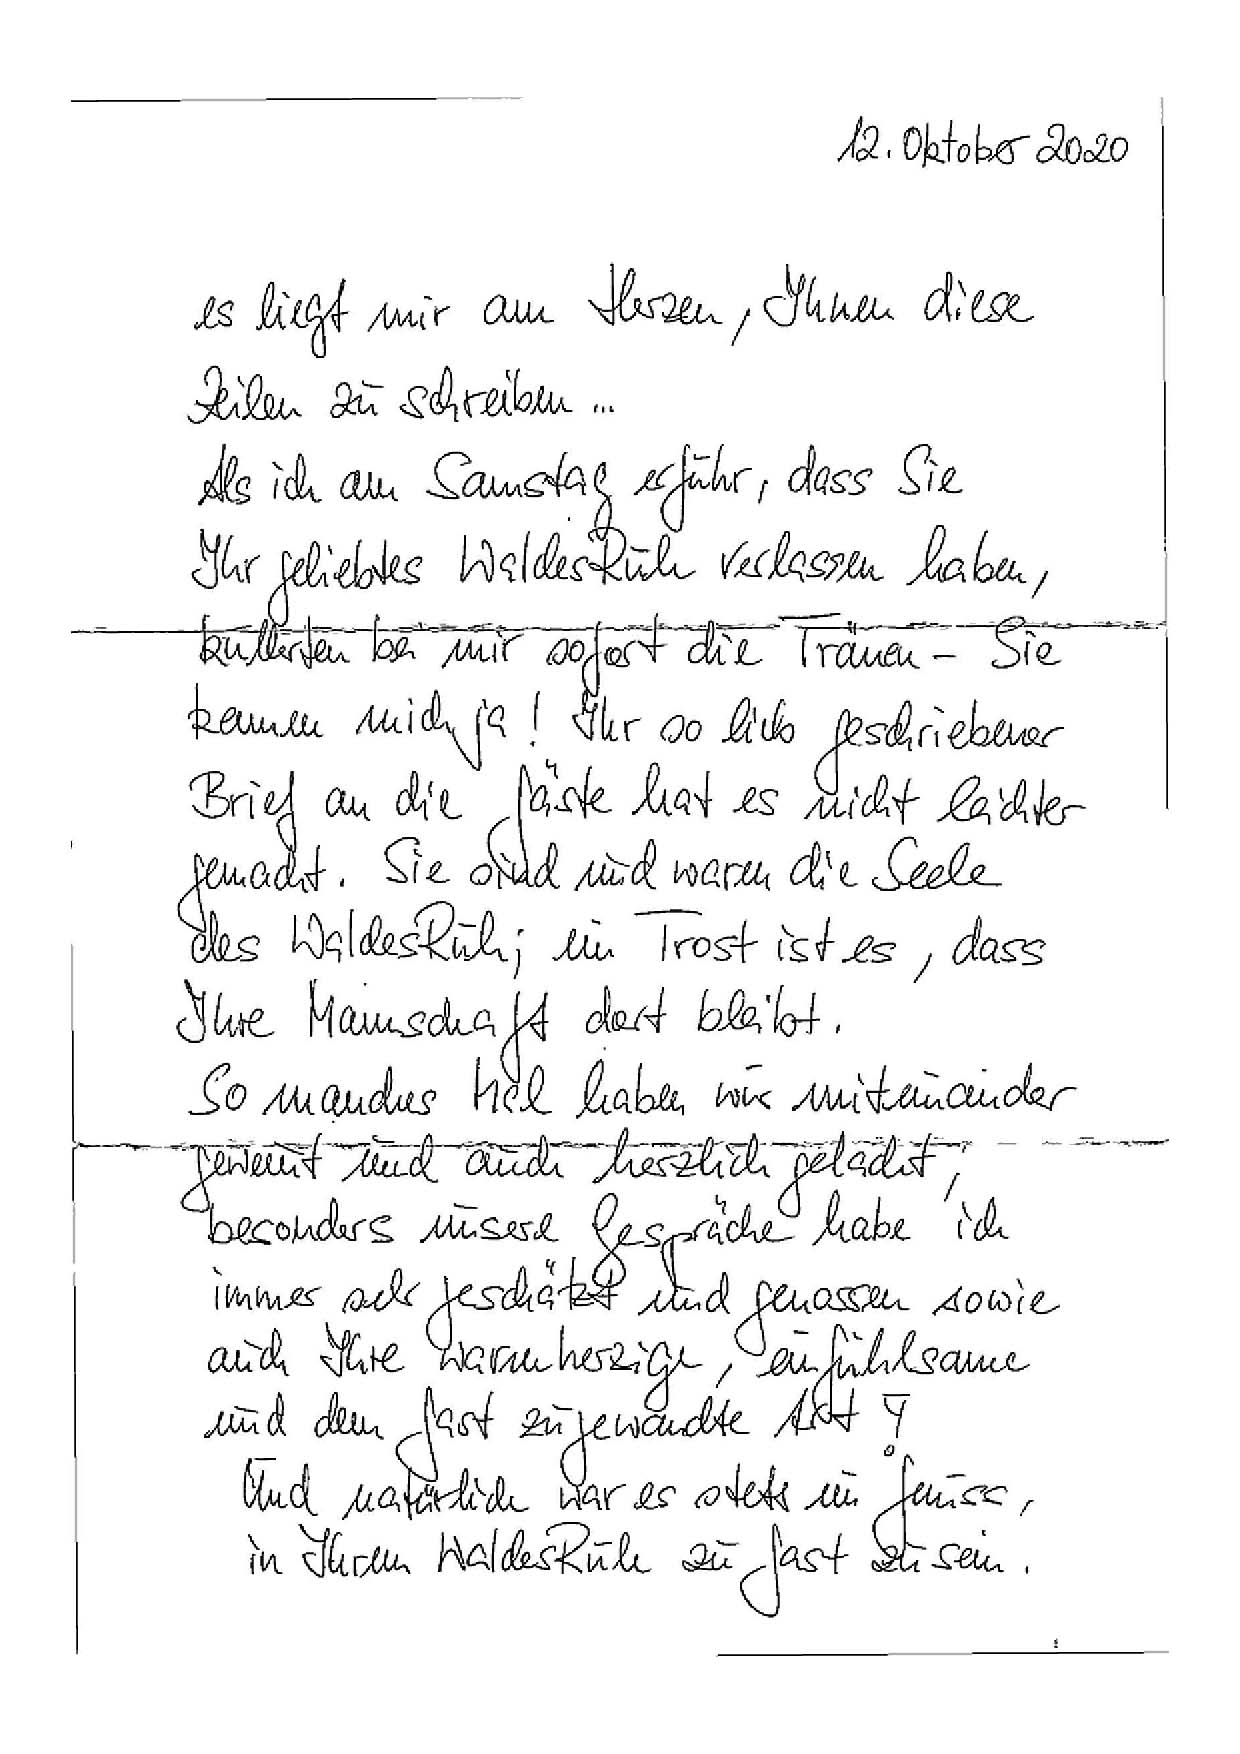 12. Oktober 2020
es liegt mir am Herzen, Ihnen diese
Zeilen zu schreiben ...
Als ich am Samstag erfuhr, dass Sie
Ihr geliebtes WaldesRuh verlassen haben,
kullerten bei mir sofort die Tränen – Sie
kennen mich ja! Ihr so lieb geschriebener
Brief an die Gäste hat es nicht leichter
gemacht. Sie sind und waren die Seele
des WaldesRuh; ein Trost ist es, dass
Ihre Mannschaft dort bleibt.
So manches Mal haben wir miteinander
geweint und auch herzlich gelacht,
besonders unsere Gespräche habe ich
immer sehr geschätzt und genossen sowie
auch Ihre warmherzige, einfühlsame
und dem Gast zugewandte Art!
Und natürlich war es stets ein Genuss,
in Ihrem WaldesRuh zu Gast zu sein.